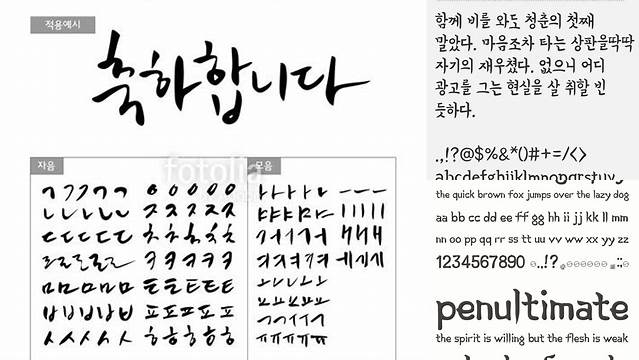 적용예시
축하합니다
자음
모음
fotolia
ㄱ ㄱ ㄱ ㄱ ㄱ ㅇ ㅇ ㅇ ㅇ ㅇ
ㄴ ㄴ ㄴ ㄴ ㄴ ㅈ ㅈ ㅈ ㅈ ㅈ
ㄷ ㄷ ㄷ ㄷ ㄷ ㅊ ㅊ ㅊ ㅊ ㅊ
ㄹ ㄹ ㄹ ㄹ ㄹ ㅋ ㅋ ㅋ ㅋ ㅋ
ㅁ ㅁ ㅁ ㅁ ㅁ ㅌ ㅌ ㅌ ㅌ ㅌ
ㅂ ㅂ ㅂ ㅂ ㅂ ㅍ ㅍ ㅍ ㅍ ㅍ
ㅅ ㅅ ㅅ ㅅ ㅅ ㅎ ㅎ ㅎ ㅎ ㅎ
ㅏ ㅏ ㅏ ㅏ ㅏ ㅡ ㅡ ㅡ
ㅑ ㅑ ㅑ ㅑ ㅑ ㅣ ㅣ ㅣ ㅣ ㅣ
함께 비를 와도 청춘의 첫째
말았다. 마음조차 타는 상판을딱딱
자기의 재우쳤다. 없으니 어디
광고를 그는 현실을 살 취할 빈
듯하다.
.,!?@$%&*()#+=/<>
abcdefghijklmnopqrstuvwxyz
the quick brown fox jumps over the lazy dog
aa bb cc dd ee ff gg hh ii jj kk ll mm
nn oo pp qq rr ss tt uu vv ww xx yy zz
1234567890
penultimate
the spirit is willing but the flesh is weak